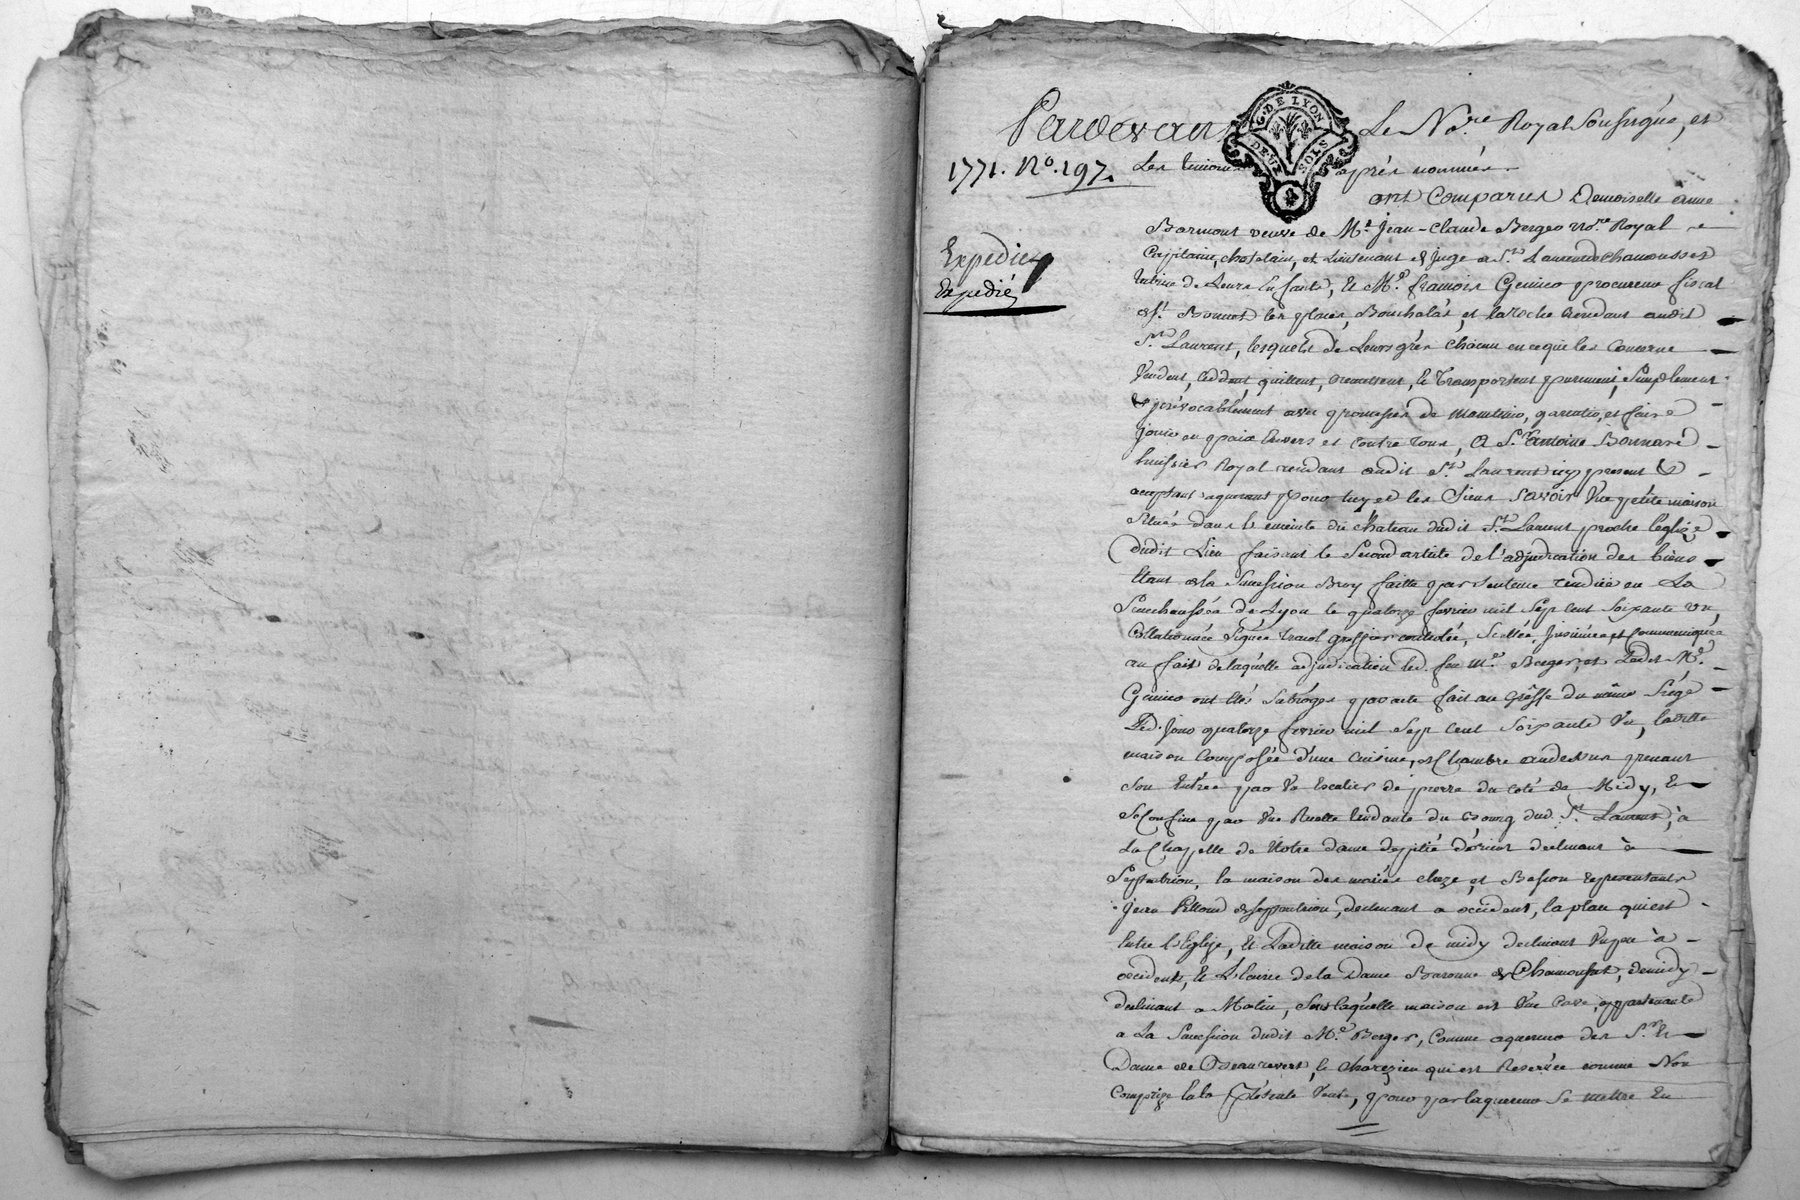 Pardevant Le No.re Royal Soussigné, et
G. DE LYON
DEUX SOLS
1771. No. 197.
Les temoins après nommés
ont Comparus Demoiselle anne
Expedié
Expedié
veuve de Me. Jean-Claude Berger No.re Royal
Capitaine, chatelain, et Lieutenant de Juge a St. Laurent de Chamousset
tutrice de Leurs Enfants, et Me. françois procureur fiscal
de St. Bonnet les places, et la roche residant audit
St. Laurent, lesquels de Leurs grés chacun en ce qui les Concerne
Vendent, Ceddent, quittent, remettent, et Transportent purement, Simplement
& irrévocablement avec promesses de maintenir, garantir, et faire
jouir en paix Envers et contre tous, A Sr. antoine Bonnard
huissier Royal residant audit St. Laurent icy present &
acceptant aquerant pour luy et les Siens Savoir Une petite maison
Située dans l'enceinte du château dudit St. Laurent proche l'eglize
dudit Lieu faisant le Second article de l'adjudication des biens
de la Succession faitte par Sentence rendüe en La
Senechaussée de Lyon le quatorze fevrier mil Sept Cent Soixante un,
Collationnée Signée greffier controlée, Scellée,
au fait de laquelle adjudication led. feu Me. Berger et Ledit Me.
ont étés Subrogés par acte fait au Gréffe du même Siége
Led. jour quatorze fevrier mil Sept Cent Soixante Un, laditte
maison Composée d'une Cuisine, et Chambre audessus prenant
Son Entrée par Un Escalier de pierre du coté de Midy, Et
Se Confine par Une Ruelle tendante du Bourg dud. St. Laurent, à
La Chapelle de Notre dame de pitié d'orient declinant à
Septentrion, la maison des mariés et representants
de Septentrion, declinant a occident, la place qui est
Entre l'Eglize, Et Laditte maison de midy declinant Un peu à
occident, Et de la Dame Baronne de Chamousset, de midy
declinant a Matin, Sous laquelle maison est Une Cave appartenante
a La Succession dudit Me. Berger, Comme aquereur des Sr. Et
Dame de qui est Reservée comme Non
Comprize En la Présente Vente, pour par l'aquereur Se mettre En